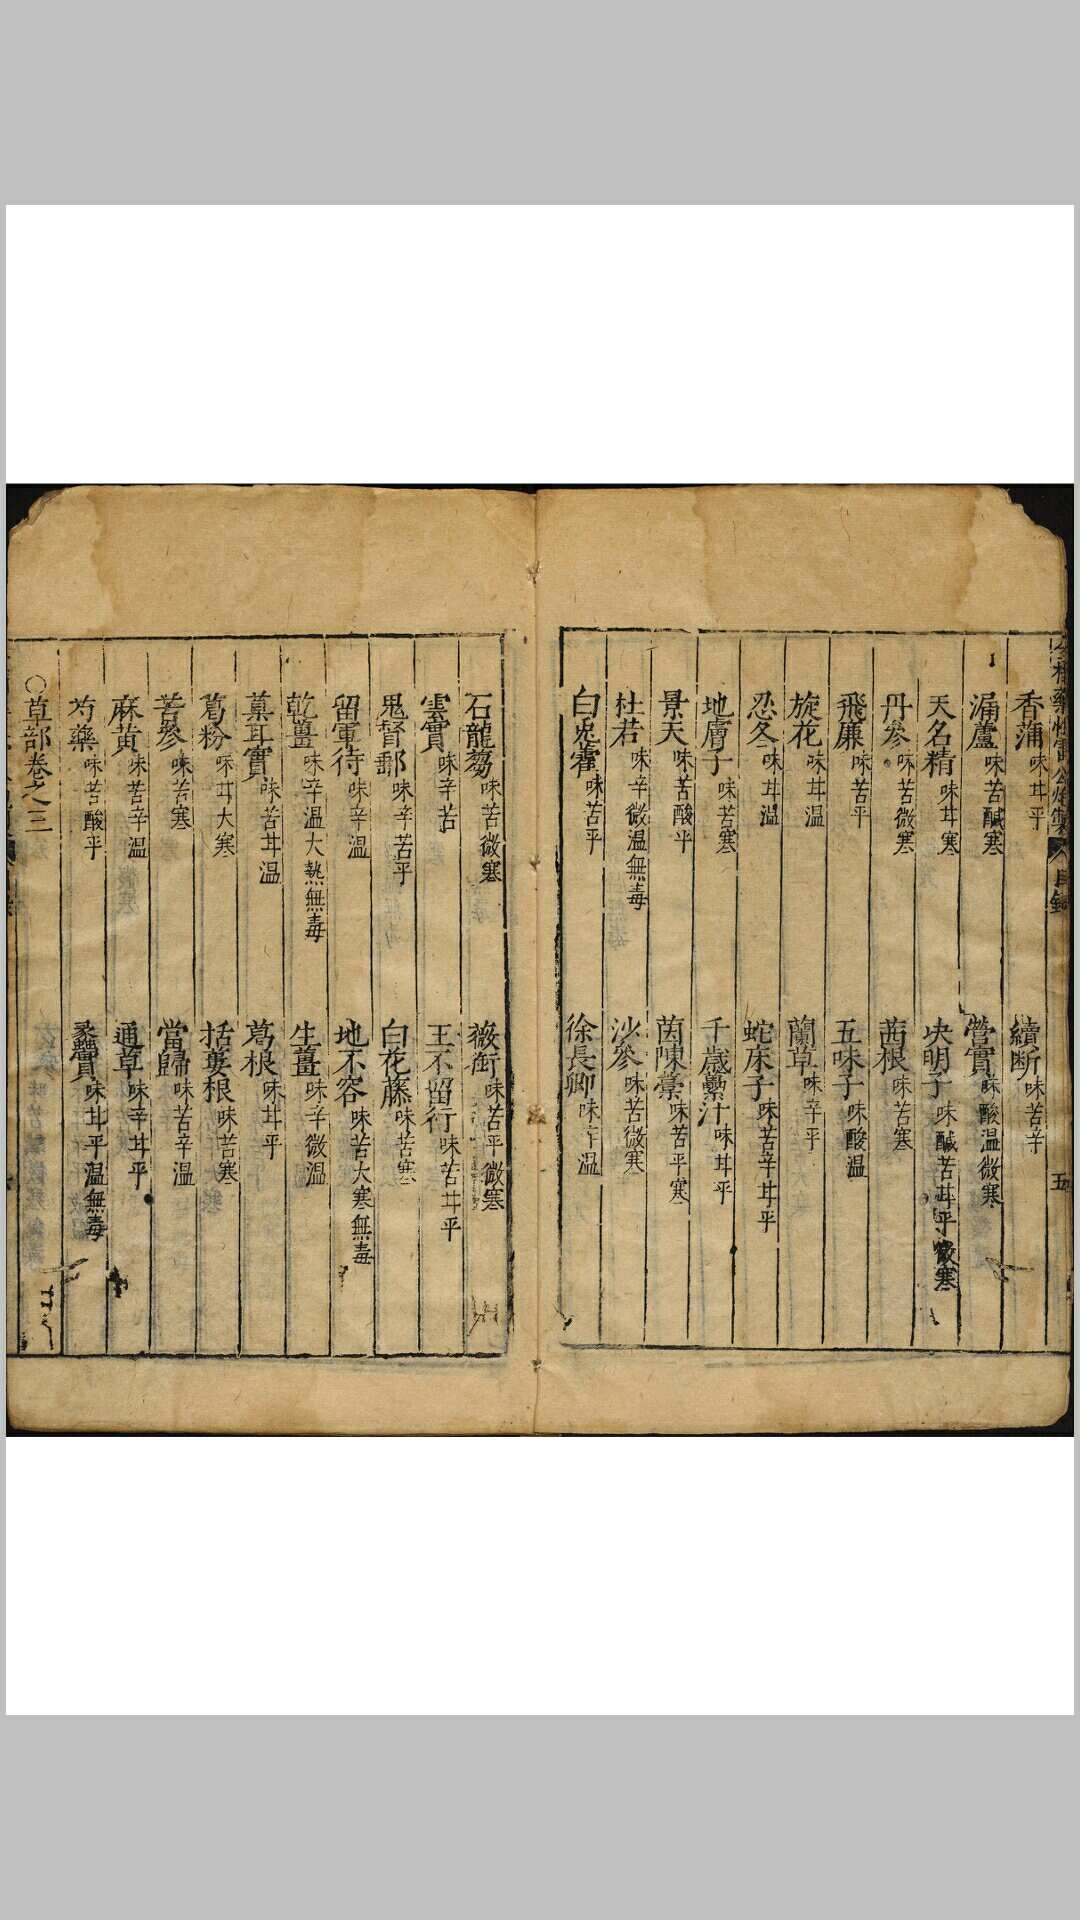 香蒲味甘平
續断味苦辛
漏蘆味苦鹹寒
營實味酸温微寒
天名精味甘寒
决明子味鹹苦甘平微寒
丹參味苦微寒
茜根味苦寒
飛廉味苦平
五味子味酸温
旋花味甘温
蘭草味辛平
忍冬味甘温
蛇床子味苦辛甘平
地膚子味苦寒
千歲虆汁味甘平
景天味苦酸平
茵陳蒿味苦平寒
杜若味辛微温無毒
沙參味苦微寒
白兎藿味苦平
徐長卿味辛温
石龍蒭味苦微寒
薇銜味苦平微寒
雲實味辛苦
王不留行味苦甘平
鬼督郵味辛苦平
白花藤味苦寒
留軍待味辛温
地不容味苦大寒無毒
乾薑味辛温大熱無毒
生薑味辛微温
葈耳實味苦甘温
葛根味甘平
葛粉味甘大寒
括蔞根味苦寒
苦參味苦寒
當歸味苦辛温
麻黄味苦辛温
通草味辛甘平
芍藥味苦酸平
蠡實味甘平温無毒
○草部卷之三